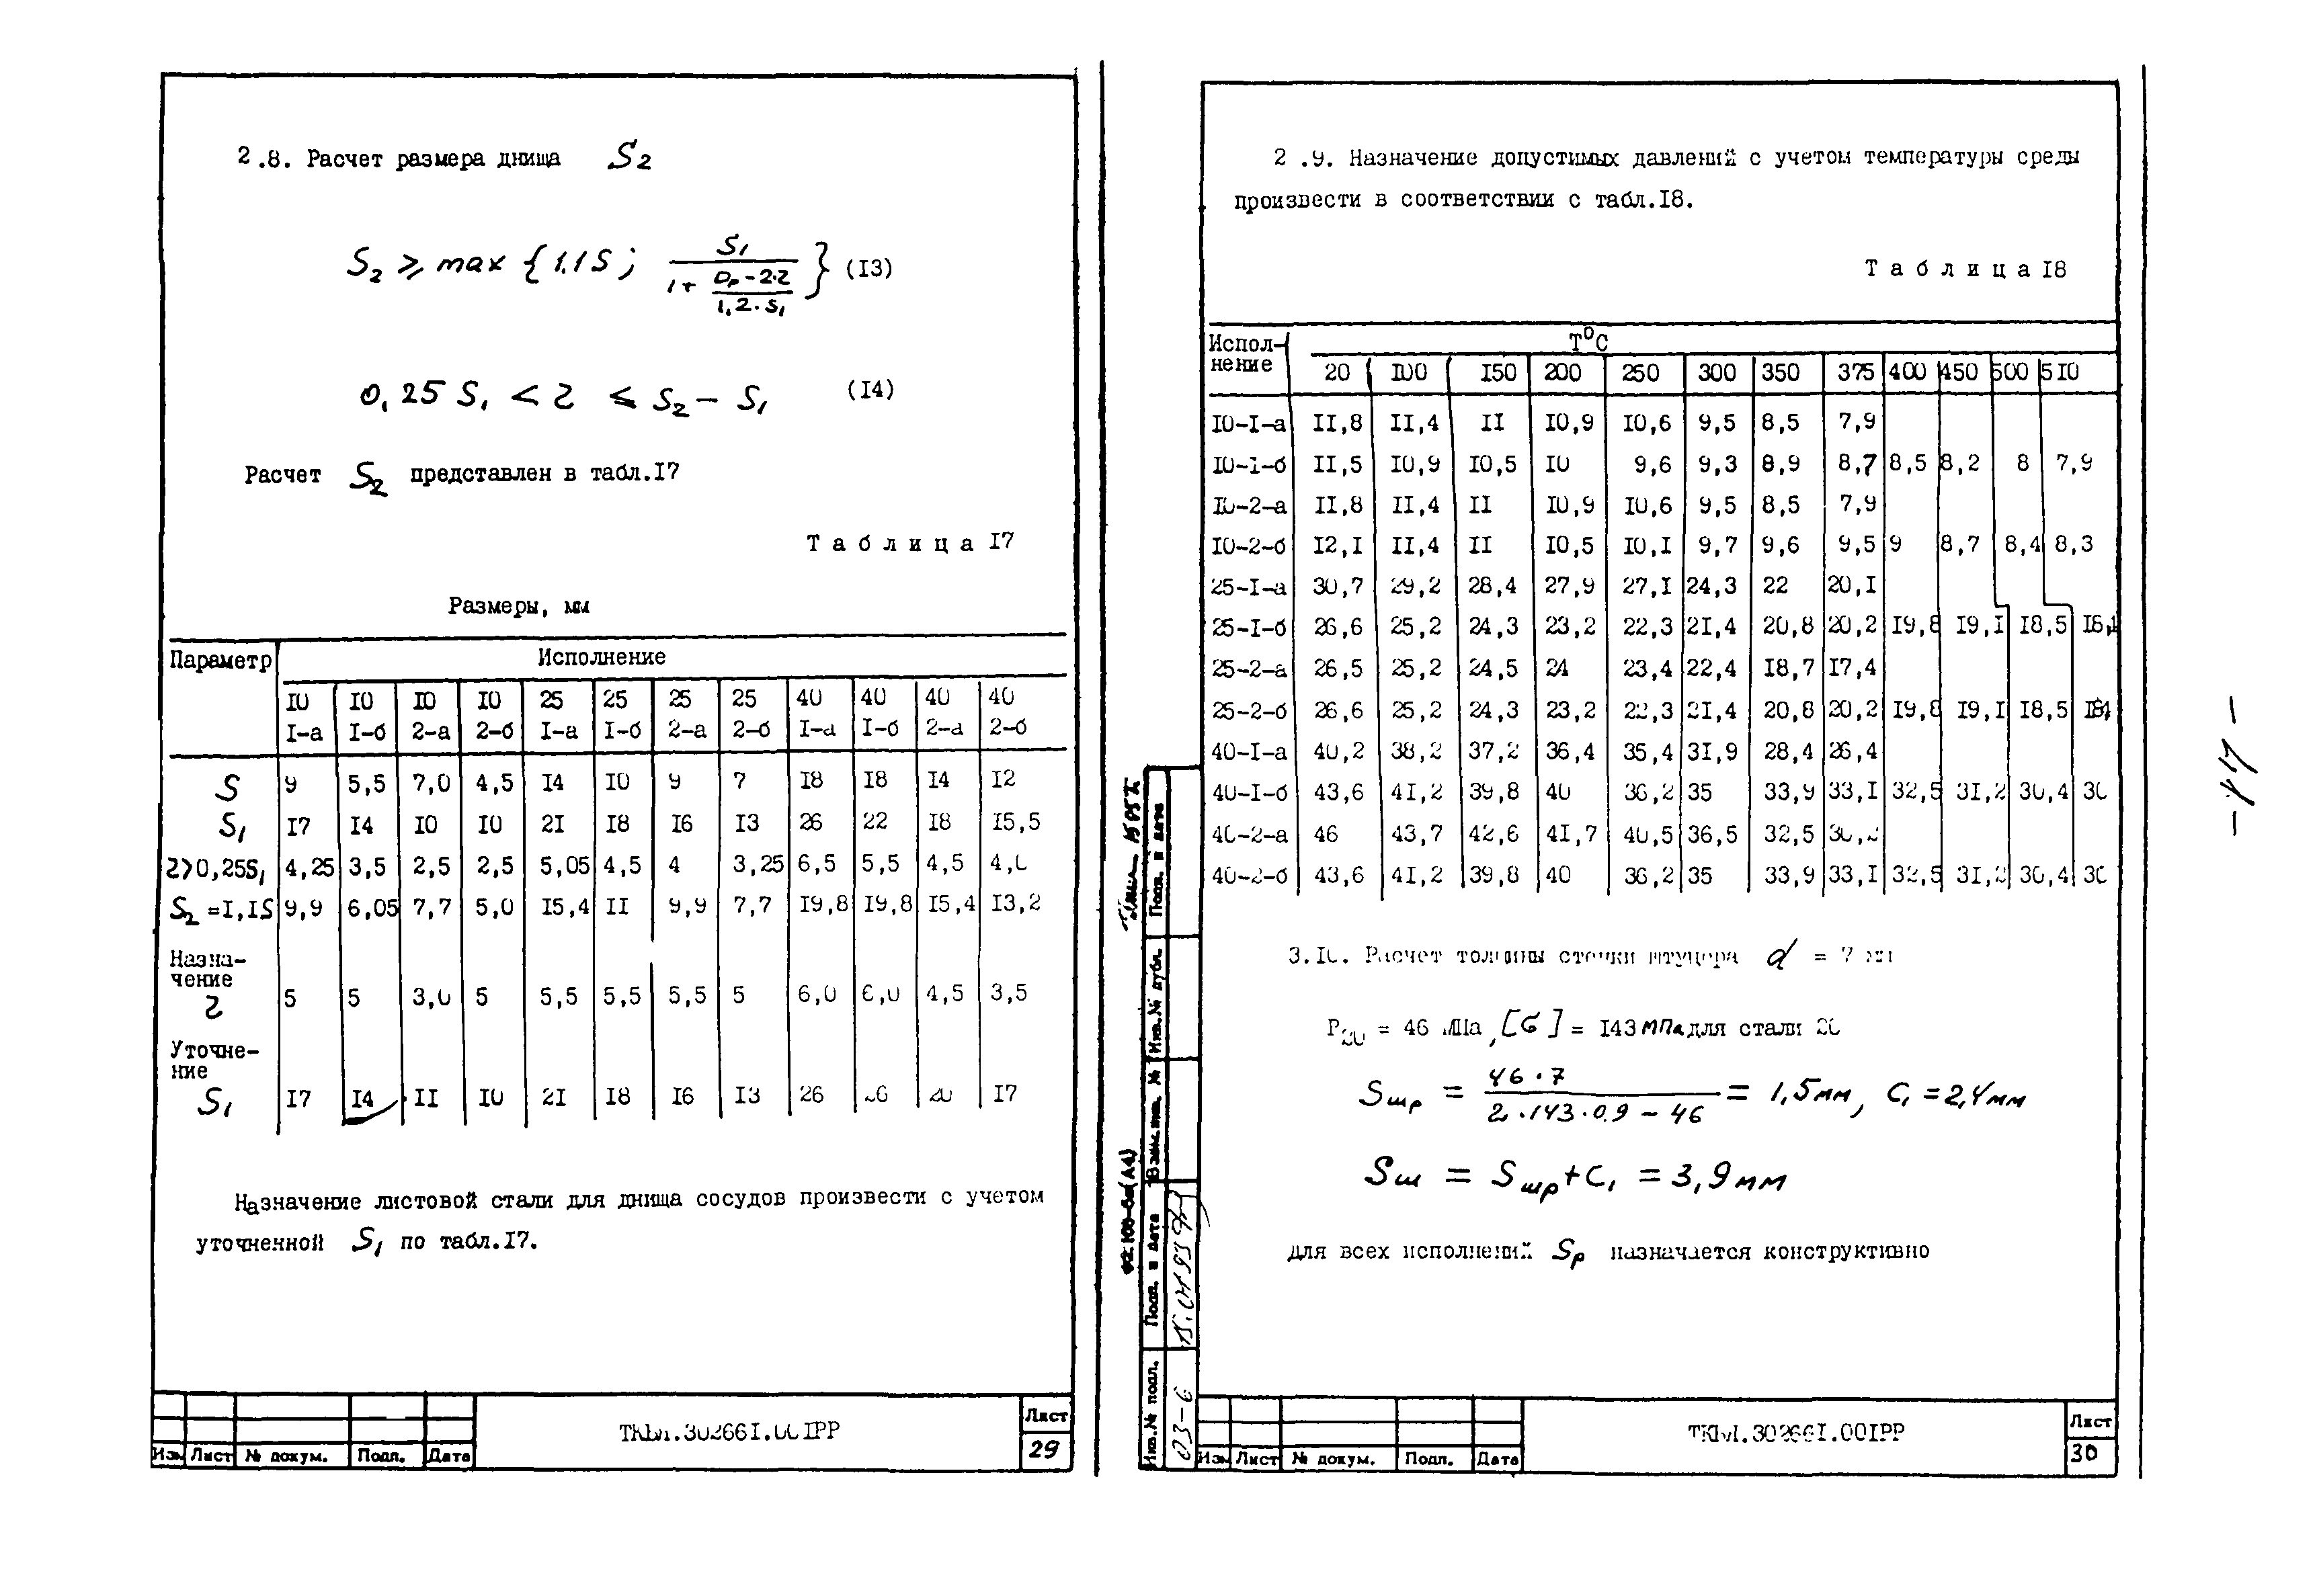 2.8. Расчет размера днища S₂
S₂ ⩾ max {1.1S; S₁ / (1 + (Dр - 2·r) / (1,2·S₁))} (I3)
0,25 S₁ < r ⩽ S₂ - S₁ (I4)
Расчет S₂ представлен в табл.I7
Т а б л и ц а I7
Размеры, мм
Параметр | Исполнение
10 I-а | 10 I-б | 10 2-а | 10 2-б | 25 I-а | 25 I-б | 25 2-а | 25 2-б | 40 I-а | 40 I-б | 40 2-а | 40 2-б
S | 9 | 5,5 | 7,0 | 4,5 | I4 | I0 | 9 | 7 | I8 | I8 | I4 | I2
S₁ | I7 | I4 | I0 | I0 | 2I | I8 | I6 | I3 | 26 | 22 | I8 | I5,5
r>0,25S₁ | 4,25 | 3,5 | 2,5 | 2,5 | 5,05 | 4,5 | 4 | 3,25 | 6,5 | 5,5 | 4,5 | 4,0
S₂=I,IS | 9,9 | 6,05 | 7,7 | 5,0 | I5,4 | II | 9,9 | 7,7 | I9,8 | I9,8 | I5,4 | I3,2
Назна-
чение
r | 5 | 5 | 3,0 | 5 | 5,5 | 5,5 | 5,5 | 5 | 6,0 | 6,0 | 4,5 | 3,5
Уточне-
ние
S₁ | I7 | I4 | II | I0 | 2I | I8 | I6 | I3 | 26 | 26 | 20 | I7
Назначение листовой стали для днища сосудов произвести с учетом
уточненной S₁ по табл.I7.
Изм Лист № докум. Подп. Дата
ТКЫ.30266I.00IРР
Лист
29
2.9. Назначение допустимых давлений с учетом температуры среды
произвести в соответствии с табл.I8.
Т а б л и ц а I8
Испол-
нение | Т°С
20 | I00 | I50 | 200 | 250 | 300 | 350 | 375 | 400 | 450 | 500 | 5I0
I0-I-а | II,8 | II,4 | II | I0,9 | I0,6 | 9,5 | 8,5 | 7,9
I0-I-б | II,5 | I0,9 | I0,5 | I0 | 9,6 | 9,3 | 8,9 | 8,7 | 8,5 | 8,2 | 8 | 7,9
I0-2-а | II,8 | II,4 | II | I0,9 | I0,6 | 9,5 | 8,5 | 7,9
I0-2-б | I2,I | II,4 | II | I0,5 | I0,I | 9,7 | 9,6 | 9,5 | 9 | 8,7 | 8,4 | 8,3
25-I-а | 30,7 | 29,2 | 28,4 | 27,9 | 27,I | 24,3 | 22 | 20,I
25-I-б | 26,6 | 25,2 | 24,3 | 23,2 | 22,3 | 2I,4 | 20,8 | 20,2 | I9,8 | I9,I | I8,5
25-2-а | 26,5 | 25,2 | 24,5 | 24 | 23,4 | 22,4 | I8,7 | I7,4
25-2-б | 26,6 | 25,2 | 24,3 | 23,2 | 22,3 | 2I,4 | 20,8 | 20,2 | I9,8 | I9,I | I8,5
40-I-а | 40,2 | 38,2 | 37,2 | 36,4 | 35,4 | 3I,9 | 28,4 | 26,4
40-I-б | 43,6 | 4I,2 | 39,8 | 40 | 36,2 | 35 | 33,9 | 33,I | 32,5 | 3I,2 | 30,4 | 30
40-2-а | 46 | 43,7 | 42,6 | 4I,7 | 40,5 | 36,5 | 32,5
40-2-б | 43,6 | 4I,2 | 39,8 | 40 | 36,2 | 35 | 33,9 | 33,I | 32,5 | 3I,2 | 30,4 | 30
3.I0. Расчет толщины стенки штуцера d = 7 мм
P₂₀ = 46 МПа, [б] = I43 МПа для стали 20
Sшр = 46·7 / (2·143·0.9 - 46) = 1,5мм, C₁ = 2,4мм
Sш = Sшр + C₁ = 3,9мм
для всех исполнений Sр назначается конструктивно
Подп. и дата
Инв.№ дубл.
Взам. инв. №
Подп. и дата
Инв.№ подл.
03-6
Изм Лист № докум. Подп. Дата
ТКЫ.30266I.00IРР
Лист
30